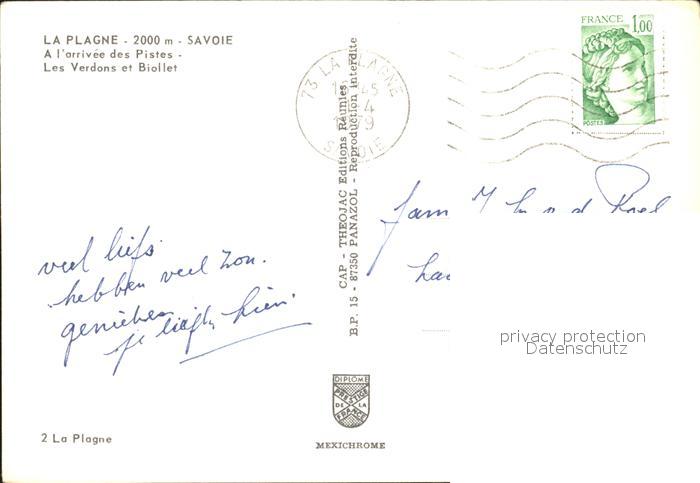 LA PLAGNE - 2000 m - SAVOIE
A l'arrivée des Pistes -
Les Verdons et Biollet
FRANCE 1,00
POSTES
73 LA PLAGNE
SAVOIE
CAP - THEOJAC Editions Réunies
B.P. 15 - 87350 PANAZOL - Reproduction interdite
veel liefs
hebben veel zon.
genieten
je liefh
Fam
privacy protection
Datenschutz
DIPLOME
PRESTIGE
DE LA
FRANCE
2 La Plagne
MEXICHROME